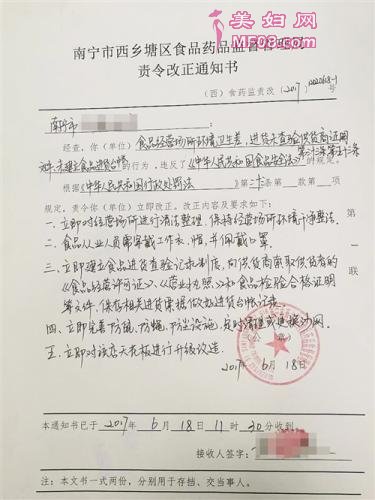 美妇网
MF08.COM
南宁市西乡塘区食品药品监督管理局
责令改正通知书
（西）食药监责改（2017）
号
南宁市
经查，你（单位）食品经营场所环境卫生差，进货未查验供货商证明
文件未建立食品进货台帐的行为，违反了《中华人民共和国食品安全法》的规定。
根据《中华人民共和国行政处罚法》第二十三条第 款第 项
规定，责令你（单位）立即改正。改正内容及要求如下：
一、立即对经营场所进行清洁整理，保持经营场所环境干净整洁。
二、食品从业人员需穿戴工作衣、帽，并佩戴口罩。
三、立即建立食品进货查验记录制度，向供货商索取供货者的
《食品经营许可证》、《营业执照》和食品检验合格证明
等文件，保存相关进货票据做好进货台帐记录。
四、立即完善防鼠、防蝇、防尘设施，及时清理或更换沙网。
五、立即对该店天花板进行升级改造。
（公章）
2017年6月18日
第一联
本通知书已于2017年6月18日11时30分收到。
接收人签字：
注：本文书一式两份，分别用于存档、交当事人。